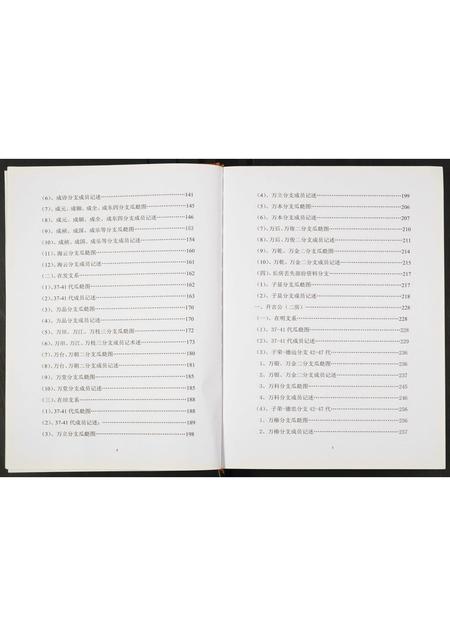 (6)、成 分支成员记述 141
(7)、成元、成 、成全、成东四分支瓜瓞图 145
(8)、成元、成 、成全、成东四分支成员记述 146
(9)、成 、成国、成乐等分支瓜瓞图
(10)、成 、成国、成乐等分支成员记述 154
(11)、海云分支瓜瓞图 160
(12)、海云分支成员记述 161
(二)、在发支系 162
(1)、37-41代瓜瓞图 162
(2)、37-41代成员记述 163
(3)、万品分支瓜瓞图 170
(4)、万品分支成员记述 170
(5)、万 、万江、万枝三分支瓜瓞图 172
(6)、万 、万江、万枝三分支成员记述 173
(7)、万台、万朝二分支瓜瓞图 180
(8)、万台、万朝二分支成员记述 181
(9)、万堂分支瓜瓞图 185
(10)、万堂分支成员记述 185
(三)、在田支系 188
(1)、37-41代瓜瓞图 188
(2)、37-41代成员记述 189
(3)、万立分支瓜瓞图 198
4
(4)、万立分支成员记述 199
(5)、万本分支瓜瓞图 206
(6)、万本分支成员记述 207
(7)、万后、万俊二分支瓜瓞图 210
(8)、万后、万俊二分支成员记述 211
(9)、万乾、万金二分支瓜瓞图 214
(10)、万乾、万金二分支成员记述 215
(四)、长房丢失部份资料分支 217
(1)、子显分支瓜瓞图 217
(2)、子显分支成员记述 218
一、升 公(二房) 228
(一)、在明支系 228
(1)、37-41代瓜瓞图 228
(2)、37-41代成员记述 229
(3)、子荣-德 分支42-47代 236
1、万 、万金二分支瓜瓞图 236
2、万 、万金二分支成员记述 236
3、万科分支瓜瓞图 245
4、万科分支成员记述 246
(4)、子荣-德忠分支42-47代 256
1、万椿分支瓜瓞图 256
2、万椿分支成员记述 257
5